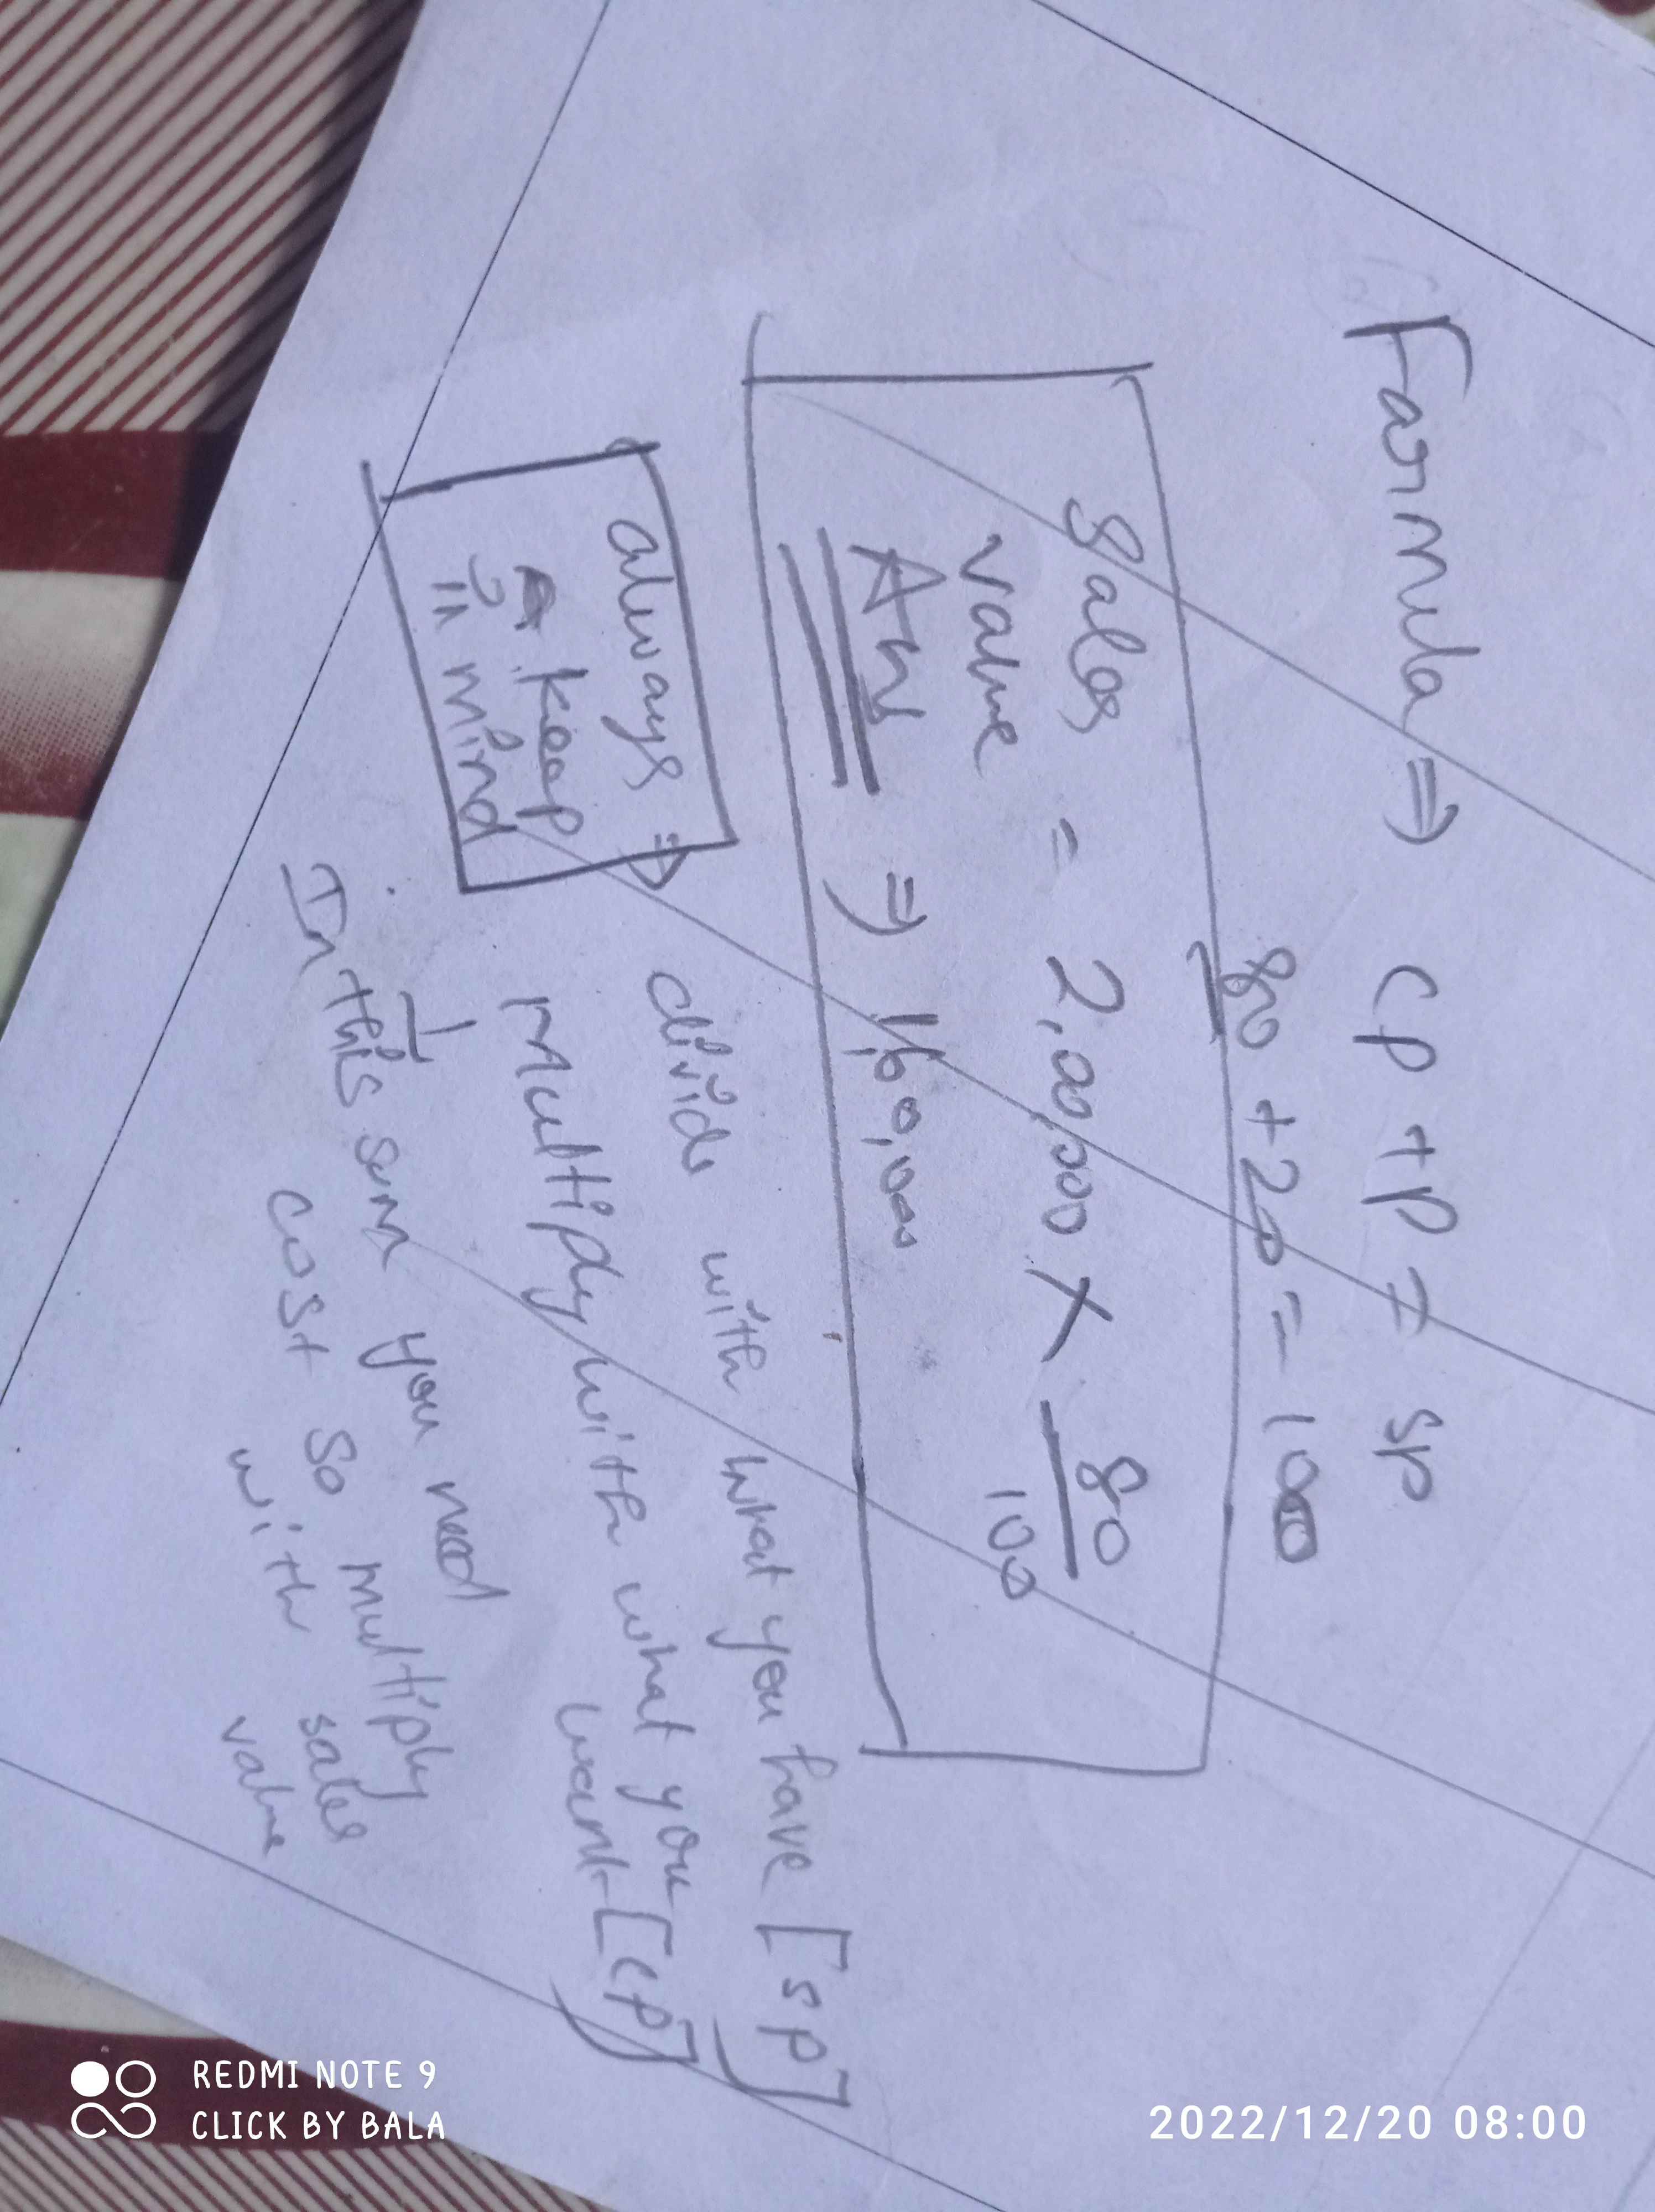 Formula ⇒ CP + P = SP
80 + 20 = 100
Sales value = 2,00,000 X 80/100
Ans ⇒ 1,60,000
always keep in mind ⇒ divide with what you have [SP]
Multiply with what you want [CP]
In this sum you need
cost so multiply
with sales
value
REDMI NOTE 9
CLICK BY BALA
2022/12/20 08:00